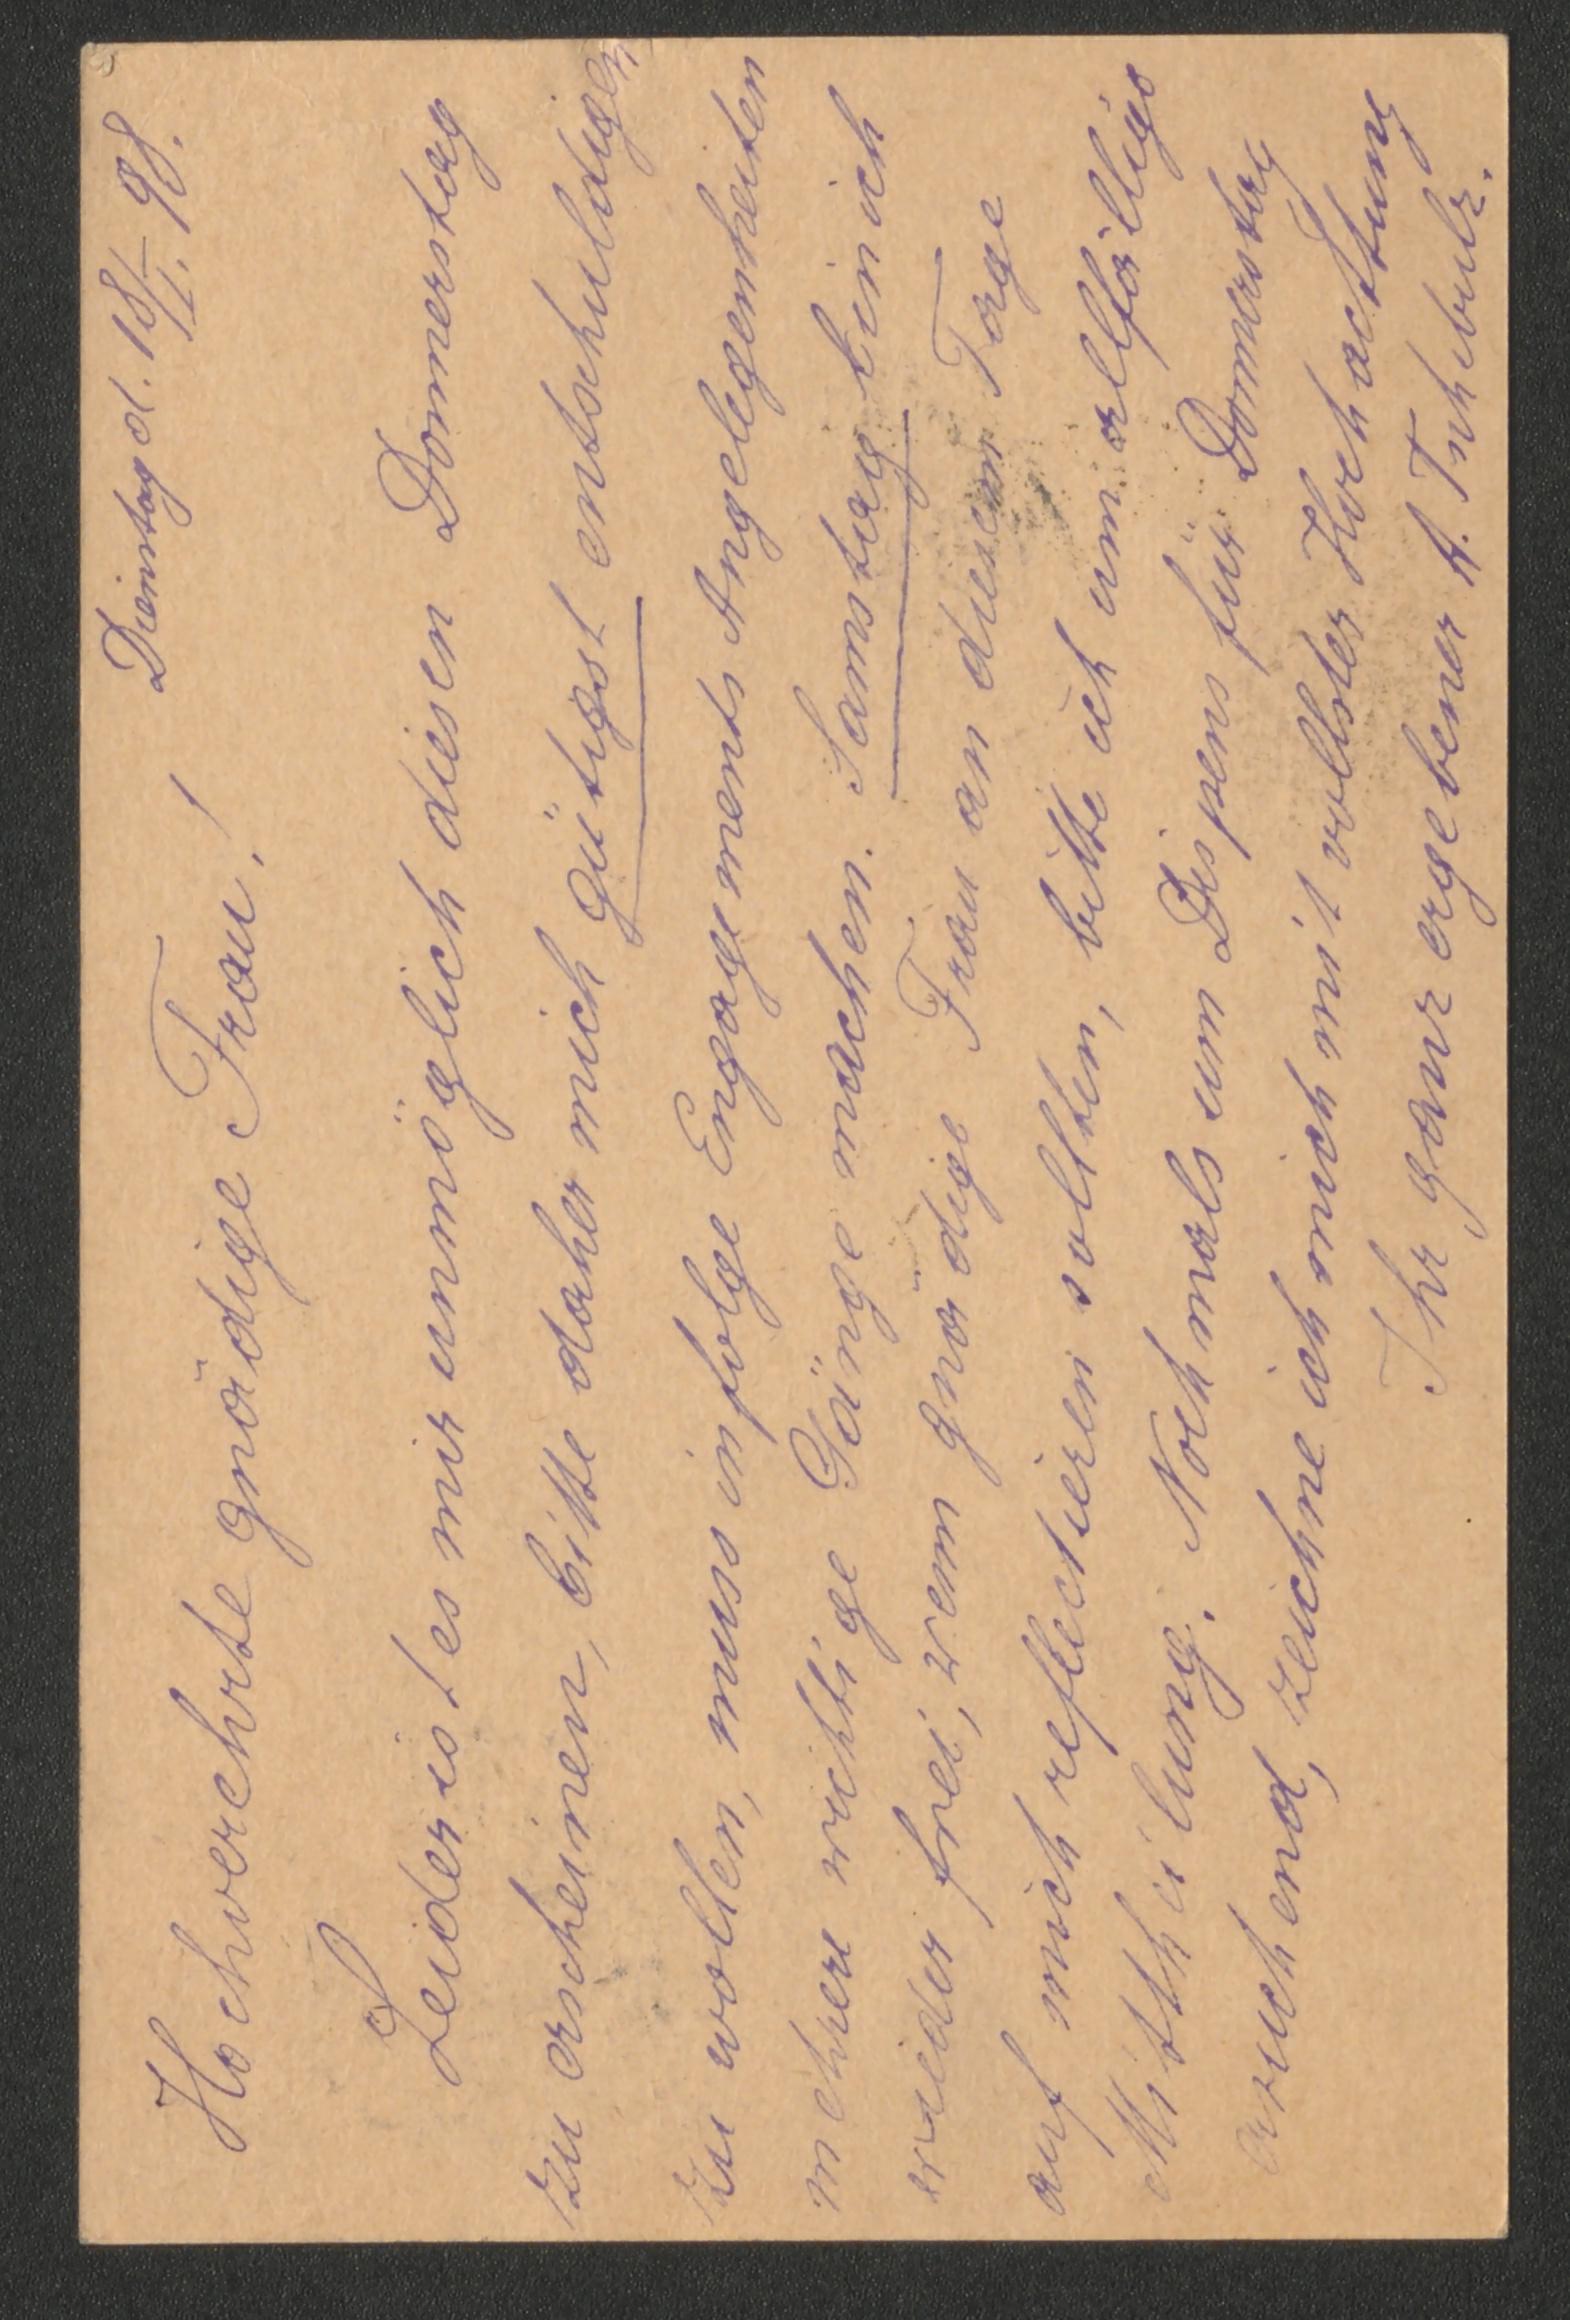 Dienstag d. 18/I. 98.
Hochverehrte gnädige Frau!
Leider ist es mir unmöglich diesen Donnerstag
zu erscheinen, bitte daher mich gütigst entschuldigen
zu wollen, muss infolge Engagements Angelegenheiten
mehrere wichtige Gänge machen. Samstag bin ich
wieder frei, wenn gnädige Frau an diesem Tage
auf mich reflectieren sollten, bitte ich um allfällige
Mittheilung. Nochmals um Dispens für Donnerstag
ersuchend, zeichne ich mich mit vollster Hochachtung
Ihr ganz ergebener A.